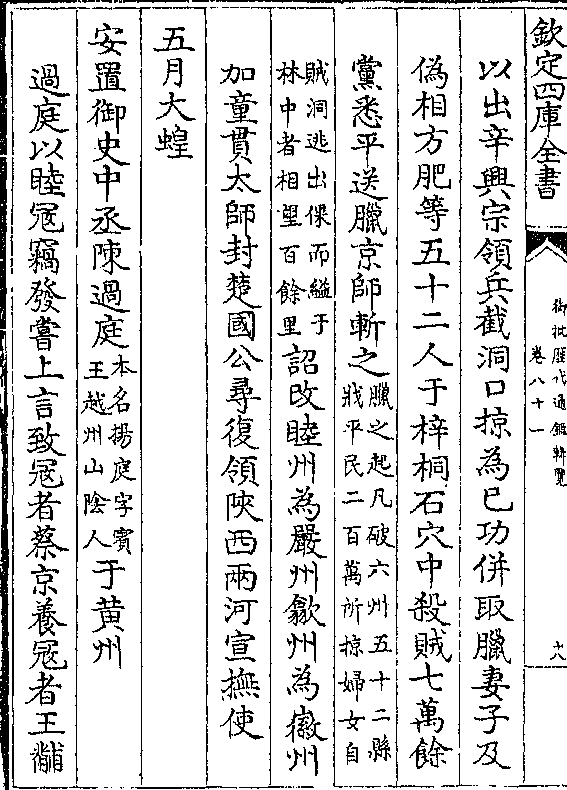 欽定四庫全書
御批歷代通鑑輯覽
卷八十一
十八
以出辛興宗領兵截洞口掠為己功併取臘妻子及
偽相方肥等五十二人于梓桐石穴中殺賊七萬餘
黨悉平送臘京師斬之臘之起凡破六州五十二縣
戕平民二百萬所掠婦女自
賊洞逃出倮而縊于
林中者相望百餘里詔改睦州為嚴州歙州為徽州
加童貫太師封楚國公尋復領陝西兩河宣撫使
五月大蝗
安置御史中丞陳過庭本名揚庭字賓
王越州山陰人于黄州
過庭以睦寇竊發嘗上言致寇者蔡京養寇者王黼